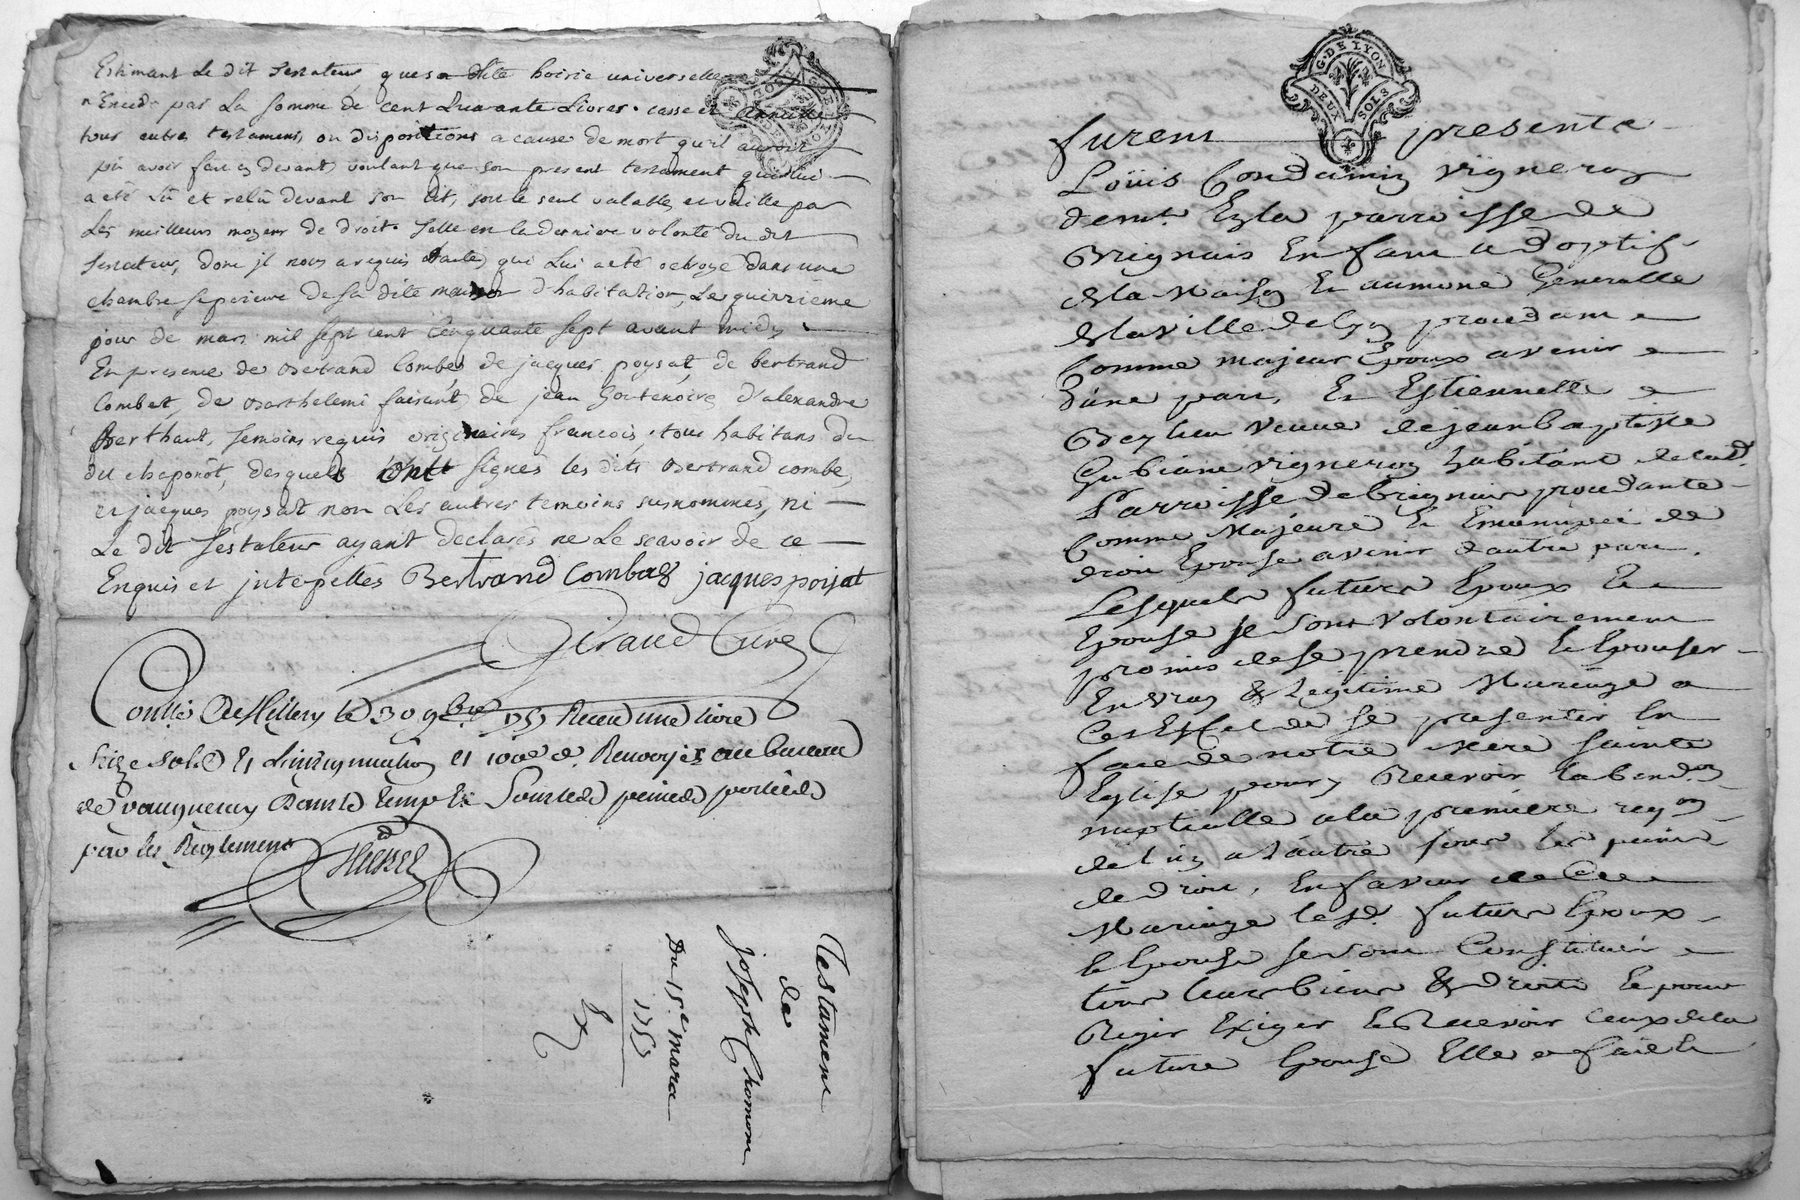 Estimant Le dit Testateur que sa dite hoirie universelle
n'Excede par La somme de cent Quarante Livres. casse et annulle
tous autre testamens, ou dispositions a cause de mort qu'il auroit
pû avoir fait cy devant, voulant que son present testament qui lui
a eté Lû et relû devant son Lit, soit le seul valable, et vaille par
Les meilleurs moyens de droit. Telle en la derniere volonté du dit
Testateur, dont jl nous a requis d'acte, qui Lui a eté octroyé dans une
chambre superieure de sa dite maison d'habitation, Le quinzième
jour de mars mil sept cent Cinquante sept avant midy
En presence de Bertrand Combet de jacques poysat, de bertrand
Combet, de Barthelemi faisant, de jean Gortenoire, d'alexandre
Berthaut, temoins requis originaires francois, tous habitans du
dit chaponôt, desquels ont signés les dits Bertrand combe,
et jacques poysat non Les autres temoins susnommés, ni
Le dit Testateur ayant declarés ne Le scavoir de ce
Enquis et jnterpellés Bertrand Combet jacques poisat
Giraud Curé
Conllé A le 30 9bre 1757 Receu une livre
Seize sols Et L'insinuation et 100e d. Renvoyés au bureau
de vaugneray Dans le temps Et Sous les peines portées
par les Reglemens
Testament
de
joseph Chomont
Du 15e marce
1757
G. DE LYON
DEUX SOLS
furent presents
Loüis Condamin Vigneron
demt En la parroisse de
Brignais Enfant adoptif
de la Maison Et aumone Generalle
de la Ville de Lyon procedant
Comme majeur Epoux avenir
d'une part, Et Estiennette
veuve de jean baptiste
Gubiant vigneron habitant de lad.
Parroisse de Brignais procedante
Comme Majeure Et Emancipée de
droit Epouse avenir d'autre part.
Lesquels futurs Epoux Et
Epouse se sont volontairement
promis de se prendre Et Epouser
En vray & Legitime Mariage a
Cet Effet de se presenter En
face de notre Mere Sainte
Eglise pour y Recevoir la bendon
nuptialle a la premiere reqon
de l'un a l'autre sous les peines
de droit, En faveur de Ce
Mariage lesd. futurs Epoux
Et Epouse se sont Constitués
tous leurs biens & droits Et pour
Regir Exiger Et Recevoir Ceux de la
future Epouse Elle a fait Et